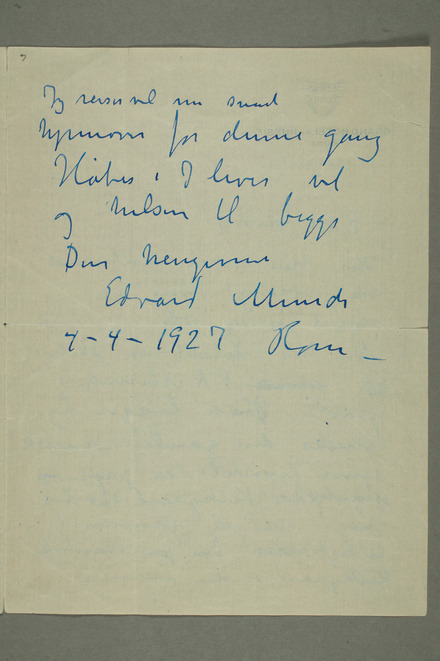 Jeg reiser vel nu snart
hjemover for denne gang
Håber i I lever vel
og hilsen til begge
Din hengivne
Edvard Munch
4-4-1927 Rom –